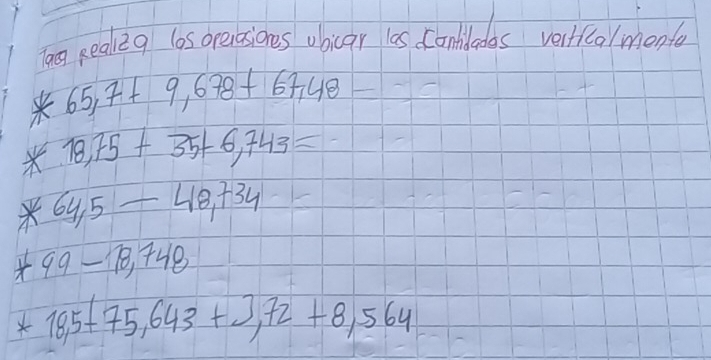 Tarea Realiza las operasiones ubicar las cantidades vertical mente
* 65,7 + 9,678 + 67,48
* 18,75 + 35 + 6,743 =
* 64,5 - 48,734
* 99 - 18,748
* 18,5 + 75,643 + 3,72 + 8,564